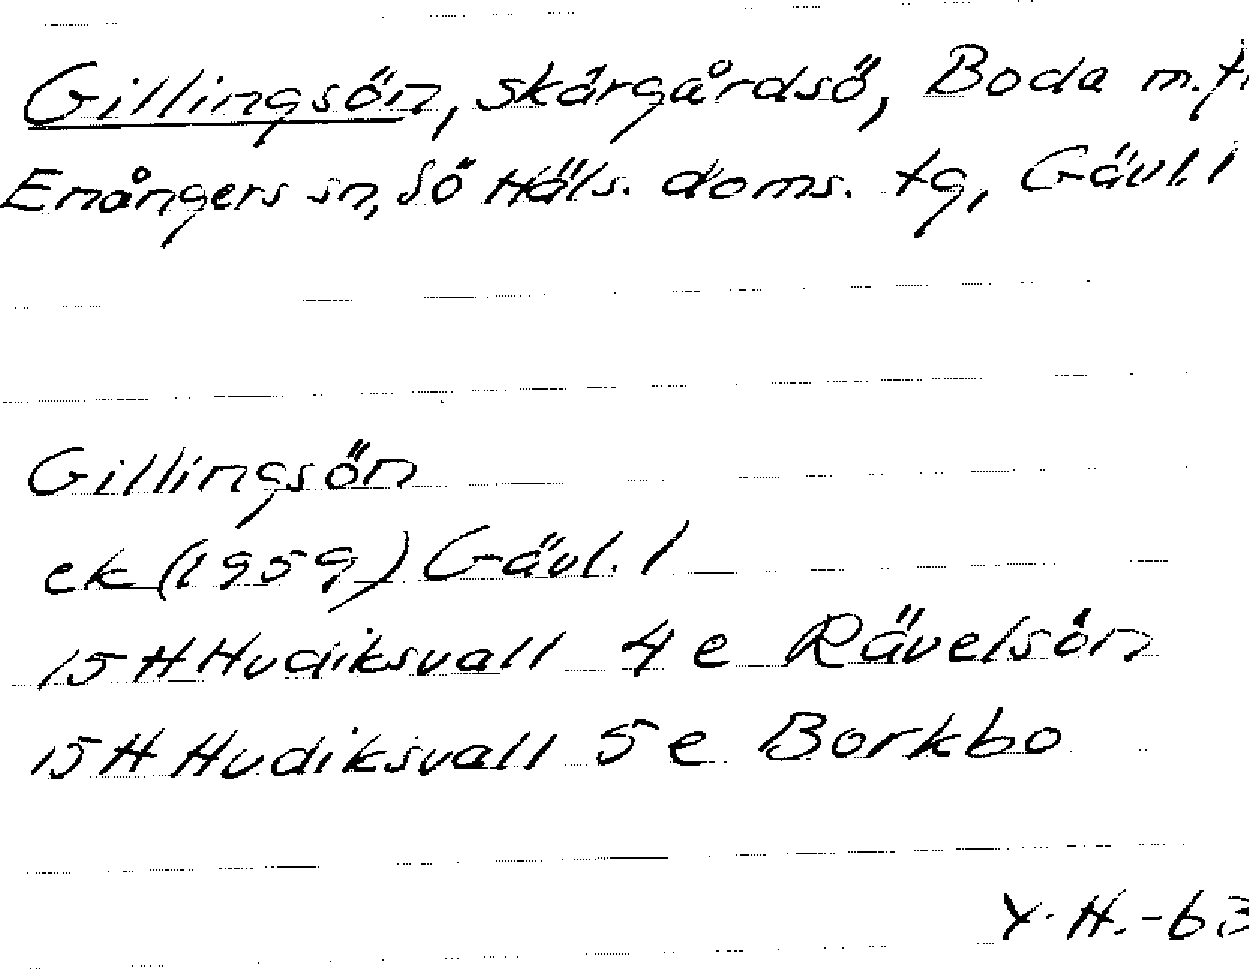 Gillingsön, skärgårdsö, Boda m.fl
Enångers sn, Sö Häls. doms. tg, Gävl. l
Gillingsön
ek (1959) Gävl. l
15 H Hudiksvall 4 e Rävelsön
15 H Hudiksvall 5 e Borkbo
Y. H. -63